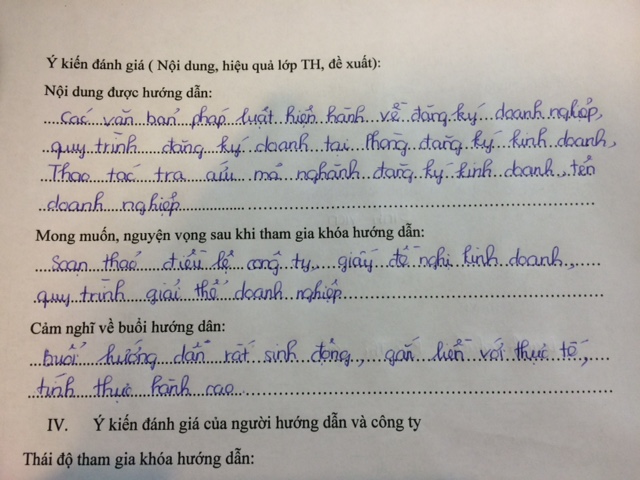 Ý kiến đánh giá ( Nội dung, hiệu quả lớp TH, đề xuất):
Nội dung được hướng dẫn:
Các văn bản pháp luật hiện hành về đăng ký doanh nghiệp,
quy trình đăng ký doanh tại Phòng đăng ký kinh doanh,
Thao tác tra cứu mã nghành đăng ký kinh doanh, tên
doanh nghiệp
Mong muốn, nguyện vọng sau khi tham gia khóa hướng dẫn:
Soạn thảo điều lệ công ty, giấy đề nghị kinh doanh,
quy trình giải thể doanh nghiệp
Cảm nghĩ về buổi hướng dân:
Buổi hướng dẫn rất sinh động, gắn liền với thực tế,
tính thực hành cao
IV. Ý kiến đánh giá của người hướng dẫn và công ty
Thái độ tham gia khóa hướng dẫn: